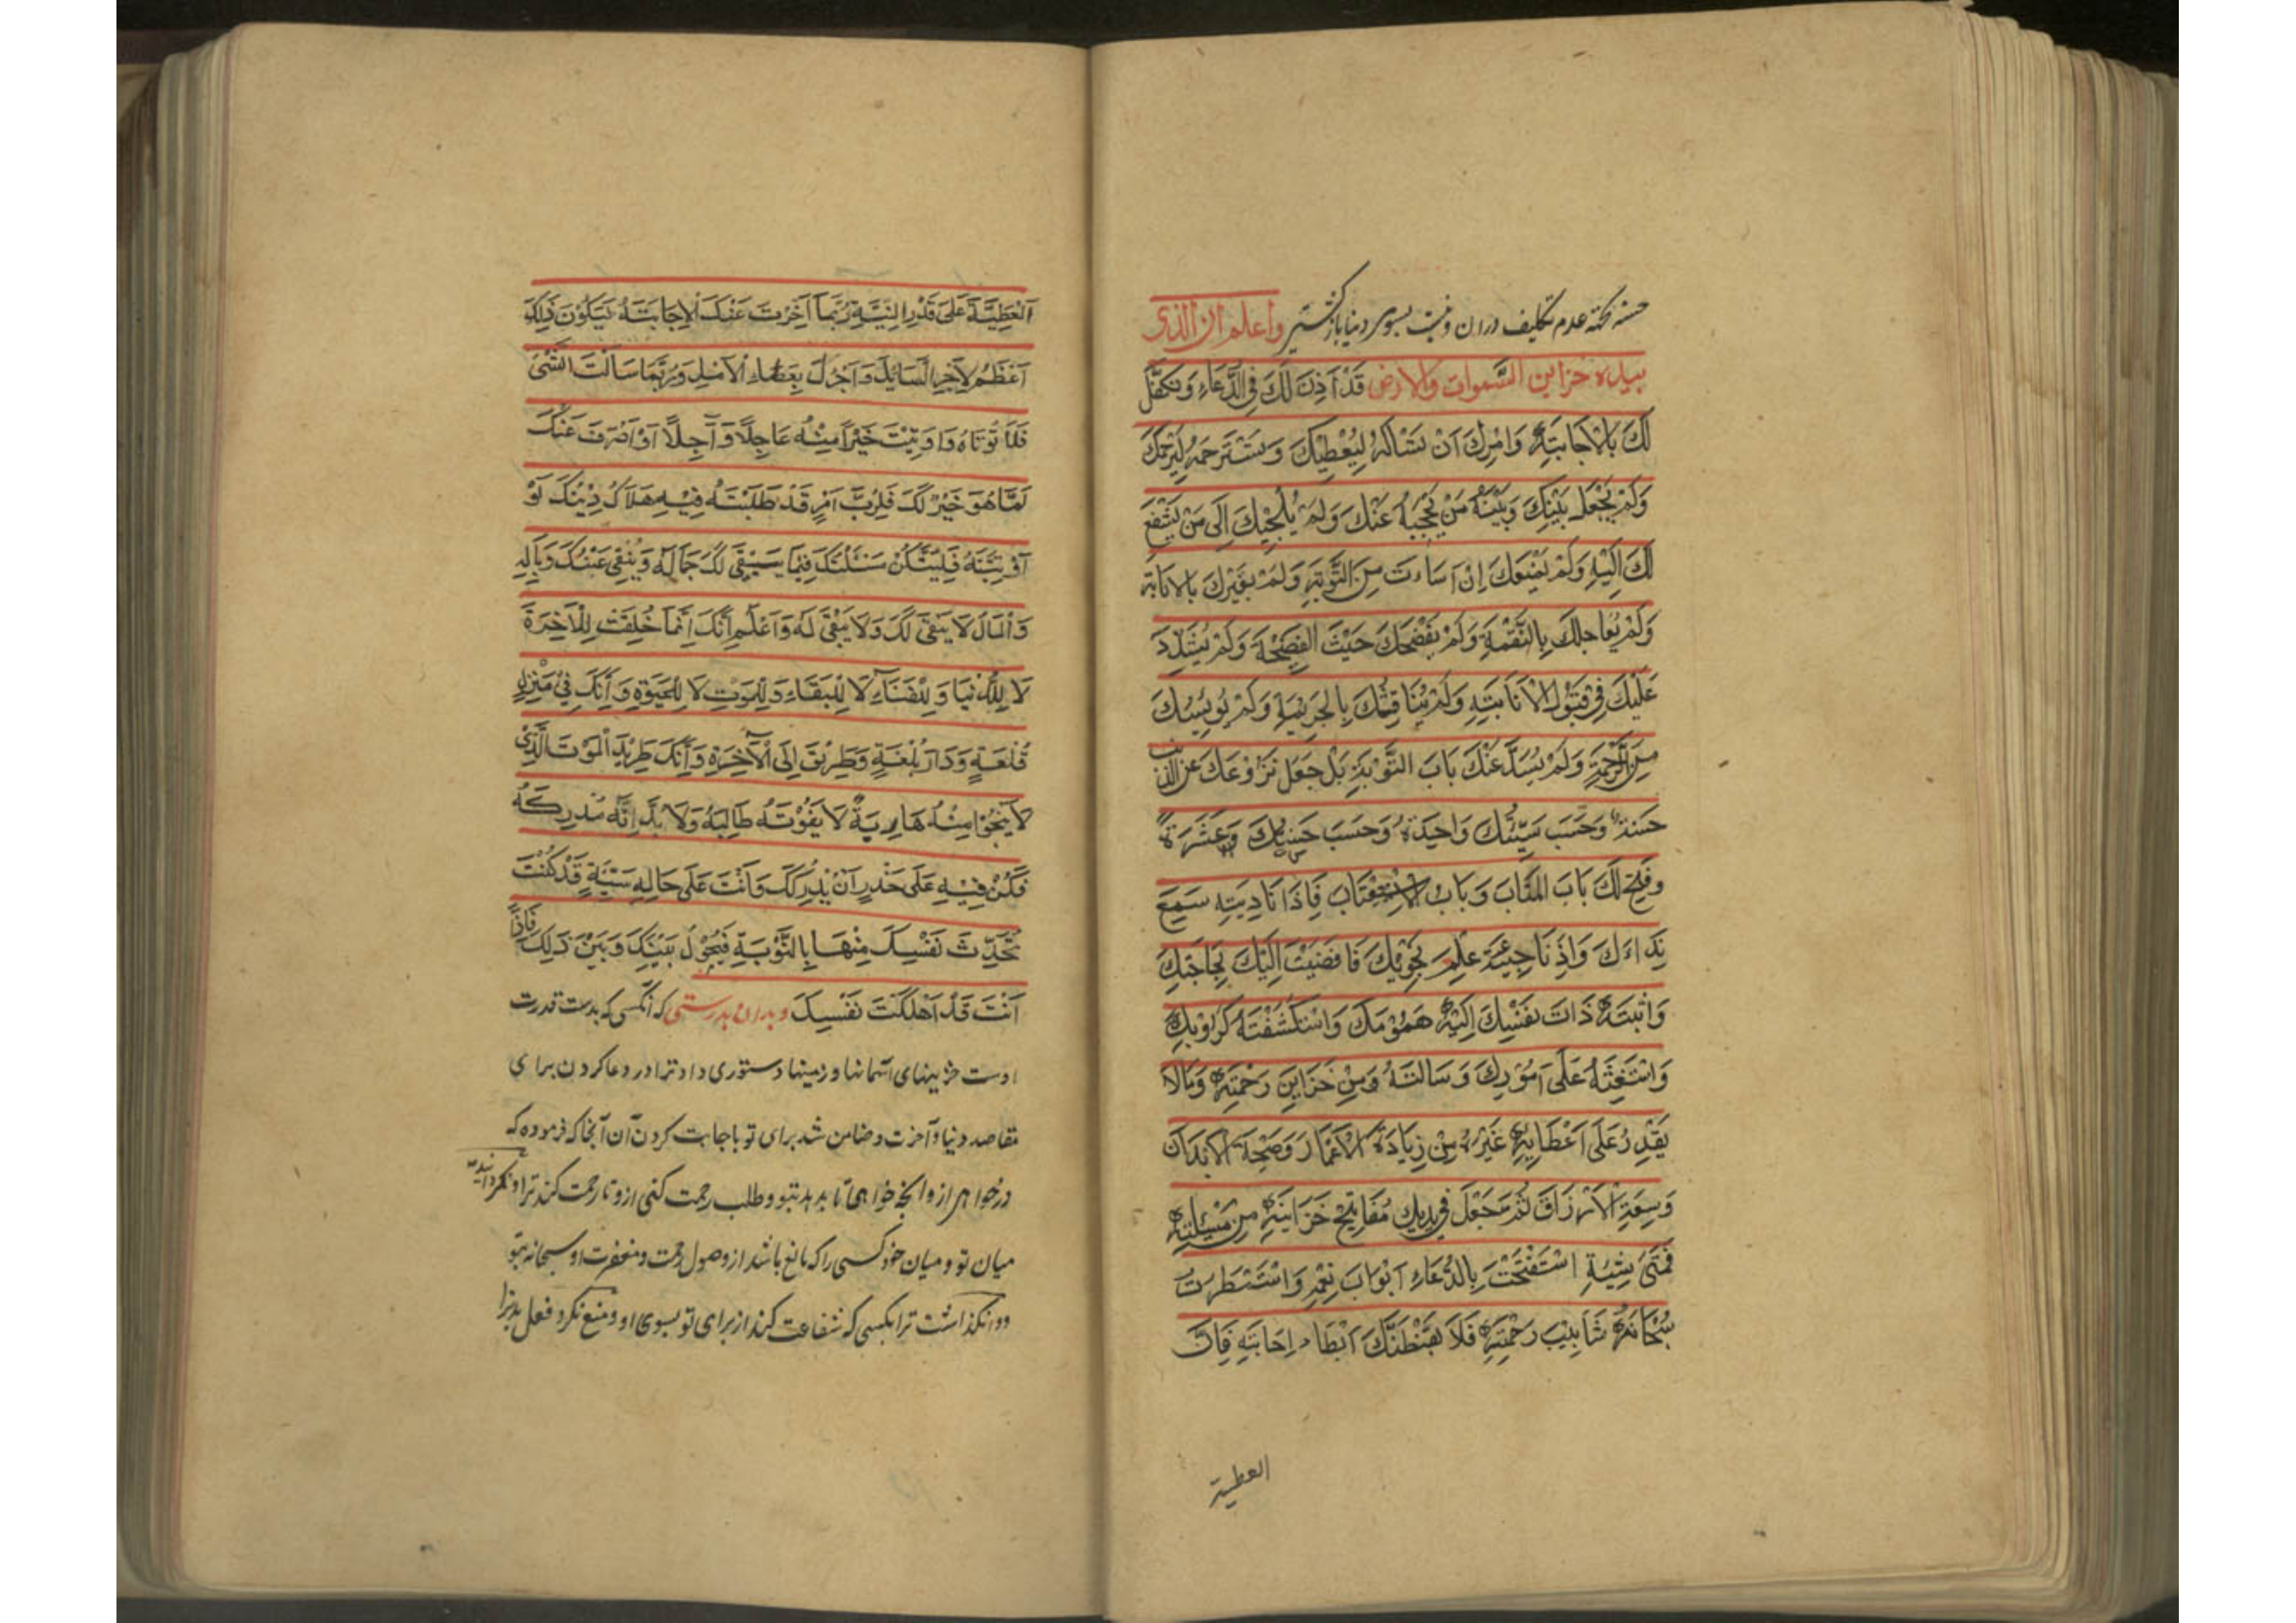 حسنه نکته عدم تکلیف در آن و نیت بسوی دنیا بازگشتیر وَاعلم ان الذی
بیده خزاین السَّموات والارض قَدْ اَذِنَ لَكَ فِی الدُّعَاءِ وَتَكَفَّلَ
لَكَ بِالْاِجَابَتِهِ وَامَرَكَ اَنْ تَسْئَالَهُ لِیُعْطِیَكَ وَتَسْتَرْحِمَهُ لِیَرْحَمَكَ
وَلَمْ یَجْعَلْ بَیْنَكَ وَبَیْنَهُ مَنْ یَحْجُبُهُ عَنْكَ وَلَمْ یُلْجِیْكَ اِلَی مَنْ یَشْفَعُ
لَكَ اِلَیْهِ وَلَمْ یَمْنَعْكَ اِنْ اَسَاءْتَ مِنَ التَّوْبَةِ وَلَمْ یُعَیِّرْكَ بِالاِنَابَةِ
وَلَمْ یُعَاجِلْكَ بِالنَّقْمَةِ وَلَمْ یَفْضَحْكَ حَیْثُ الْفَضِیْحَةَ وَلَمْ یُشَدِّدْ
عَلَیْكَ فِی قَبُوْلِ الْاِنَابَتِهِ وَلَمْ یُنَاقِشْكَ بِالْجَرِیْمَةِ وَلَمْ یُوْیِسْكَ
مِنَ الرَّحْمَةِ وَلَمْ یَسُدَّ عَنْكَ بَابَ التَّوْبَةِ بَلْ جَعَلَ نَزُوْعَكَ عَنِ الذنب
حَسَنَةً وَحَسَبَ سَیِّئَتَكَ وَاحِدَةً وَحَسَبَ حَسَنَتَكَ وَعَشَرَةً
وَفَتَحَ لَكَ بَابَ الْمَتَابَ وَبَابَ الْاِسْتِعْتَابِ فَاِذَا نَادَیْتَهِ سَمِعَ
نِدَاءَكَ وَاِذِ نَاجَیْتَهُ عَلِمَ نَجْوَیكَ فَافْضَیْتَ اِلَیْكَ بِحَاجَتِكَ
وَابْثَثْتَهُ ذَاتَ نَفْسِكَ اِلَیْهِ هَمُوْمَكَ وَاسْتَكْشَفْتَهُ كُرُوْبَكَ
وَاسْتَعَنْتَهُ عَلَی اُمُوْرِكَ وَسَالْتَهُ وَمِنْ خَزَایِنِ رَحْمَتِهِ وَمَالَا
یَقْدِرُ عَلَی اِعْطَایِهِ غَیْرُهُ مِنْ زِیَادَةِ الْاَعْمَارِ وَصِحَّةِ الْاَبْدَانِ
وَسِعَةِ الْاَرْزَاقِ ثُمَّ جَعَلَ فِی یَدَیْكَ مَفَاتِیْحَ خَزَایِنِهِ مِنْ مَسْئَلَتِهِ
فَمَتَی شِئْتَ اسْتَفْتَحْتَ بِالدُّعَاءِ اَبْوَابَ نِعَمِهِ وَاسْتَمْطَرْتَ
سُبْحَانَهُ شَابِیْبَ رَحْمَتِهِ فَلَا یُقَنِّطَنَّكَ اَبْطَاءُ اِجَابَتِهِ فَاِنَّ
العطیة
اَلْعَطِیَّةَ عَلَی قَدْرِ النِّیَّةِ رُبَّمَا اُخِّرَتْ عَنْكَ الْاِجَابَتَهُ لِیَكُوْنَ ذٰلِكَ
اَعْظَمُ لِاَجْرِ السَّایِلِ وَاَجْزَلَ بِعَطَاءِ الْاٰمِلِ وَرُبَّمَا سَاَلْتَ الشَّیْ
فَلَا تُوْتَاهُ وَاوْتِیْتَ خَیْرًا مِنْهُ عَاجِلًا وَآجِلًا اَوْ اَصْرَفَ عَنْكَ
لِمَا هُوَ خَیْرٌ لَكَ فَلَرُبَّ اَمْرٍ قَدْ طَلَبْتَهُ فِیْهِ هَلَاكُ دِیْنِكَ لَوْ
اُوْتِیْتَهُ فَلِیَتَكُنْ مَسْئَلَتُكَ فِیْمَا یَبْقَی لَكَ جَمَالَهُ وَیُنْفَی عَنْكَ وَبَالِهِ
وَالْمَالَ لَا یَبْقَی لَكَ وَلَا یَبْقَی لَهُ وَاعْلَمْ اَنَّكَ اِنَّمَا خُلِقْتَ لِلْاٰخِرَةِ
لَا لِلدُّنْیَا وَلِلْفَنَاءِ لَا لِلْبَقَاءِ وَلِلْمَوْتِ لَا لِلْحَیٰوةِ وَاَنَّكَ فِیْ مَنْزِلِ
قُلْعَةٍ وَدَارِ بُلْغَةٍ وَطَرِیْقٍ اِلَی الْآخِرَةِ وَاَنَّكَ طَرِیْدَ الْمَوْتَ الَّذِیْ
لَا یَنْجُوْا مِنْهُ هَارِبَةٌ لَا یَفُوْتَهُ طَالِبَهُ وَلَا بُدَّ اَنَّهُ مُدْرِكَهُ
فَكُنْ فِیْهِ عَلَی حَذَرٍ اَنْ یُدْرِكَكَ وَاَنْتَ عَلَی حَالِهِ سَیِّئَةٍ قَدْ كُنْتَ
تُحَدِّثُ نَفْسَكَ مِنْهَا بِالتَّوْبَةِ فَیَحُوْلَ بَیْنَكَ وَبَیْنَ ذٰلِكَ فَاِذًا
اَنْتَ قَدْ اَهْلَكْتَ نَفْسِكَ و بدان بدرستی که آنکسی که بدست قدرت
اوست خزینهای آسمانها و زمینها دستوری داد ترا در دعا کردن برای
مقاصد دنیا و آخرت و ضامن شد برای تو باجابت کردن آن آنجا که فرموده که
درخواهی از و آنچه خواهی تا بدهد بتو و طلب رحمت کنی ازو تا رحمت کند ترا و نگردانیده
میان تو و میان خود کسی را که مانع باشد از وصول رحمت و مغفرت او سبحانه بتو
و وانگذاشت ترا بکسی که شفاعت کند از برای تو بسوی او و منع نکرد فعل بد ترا